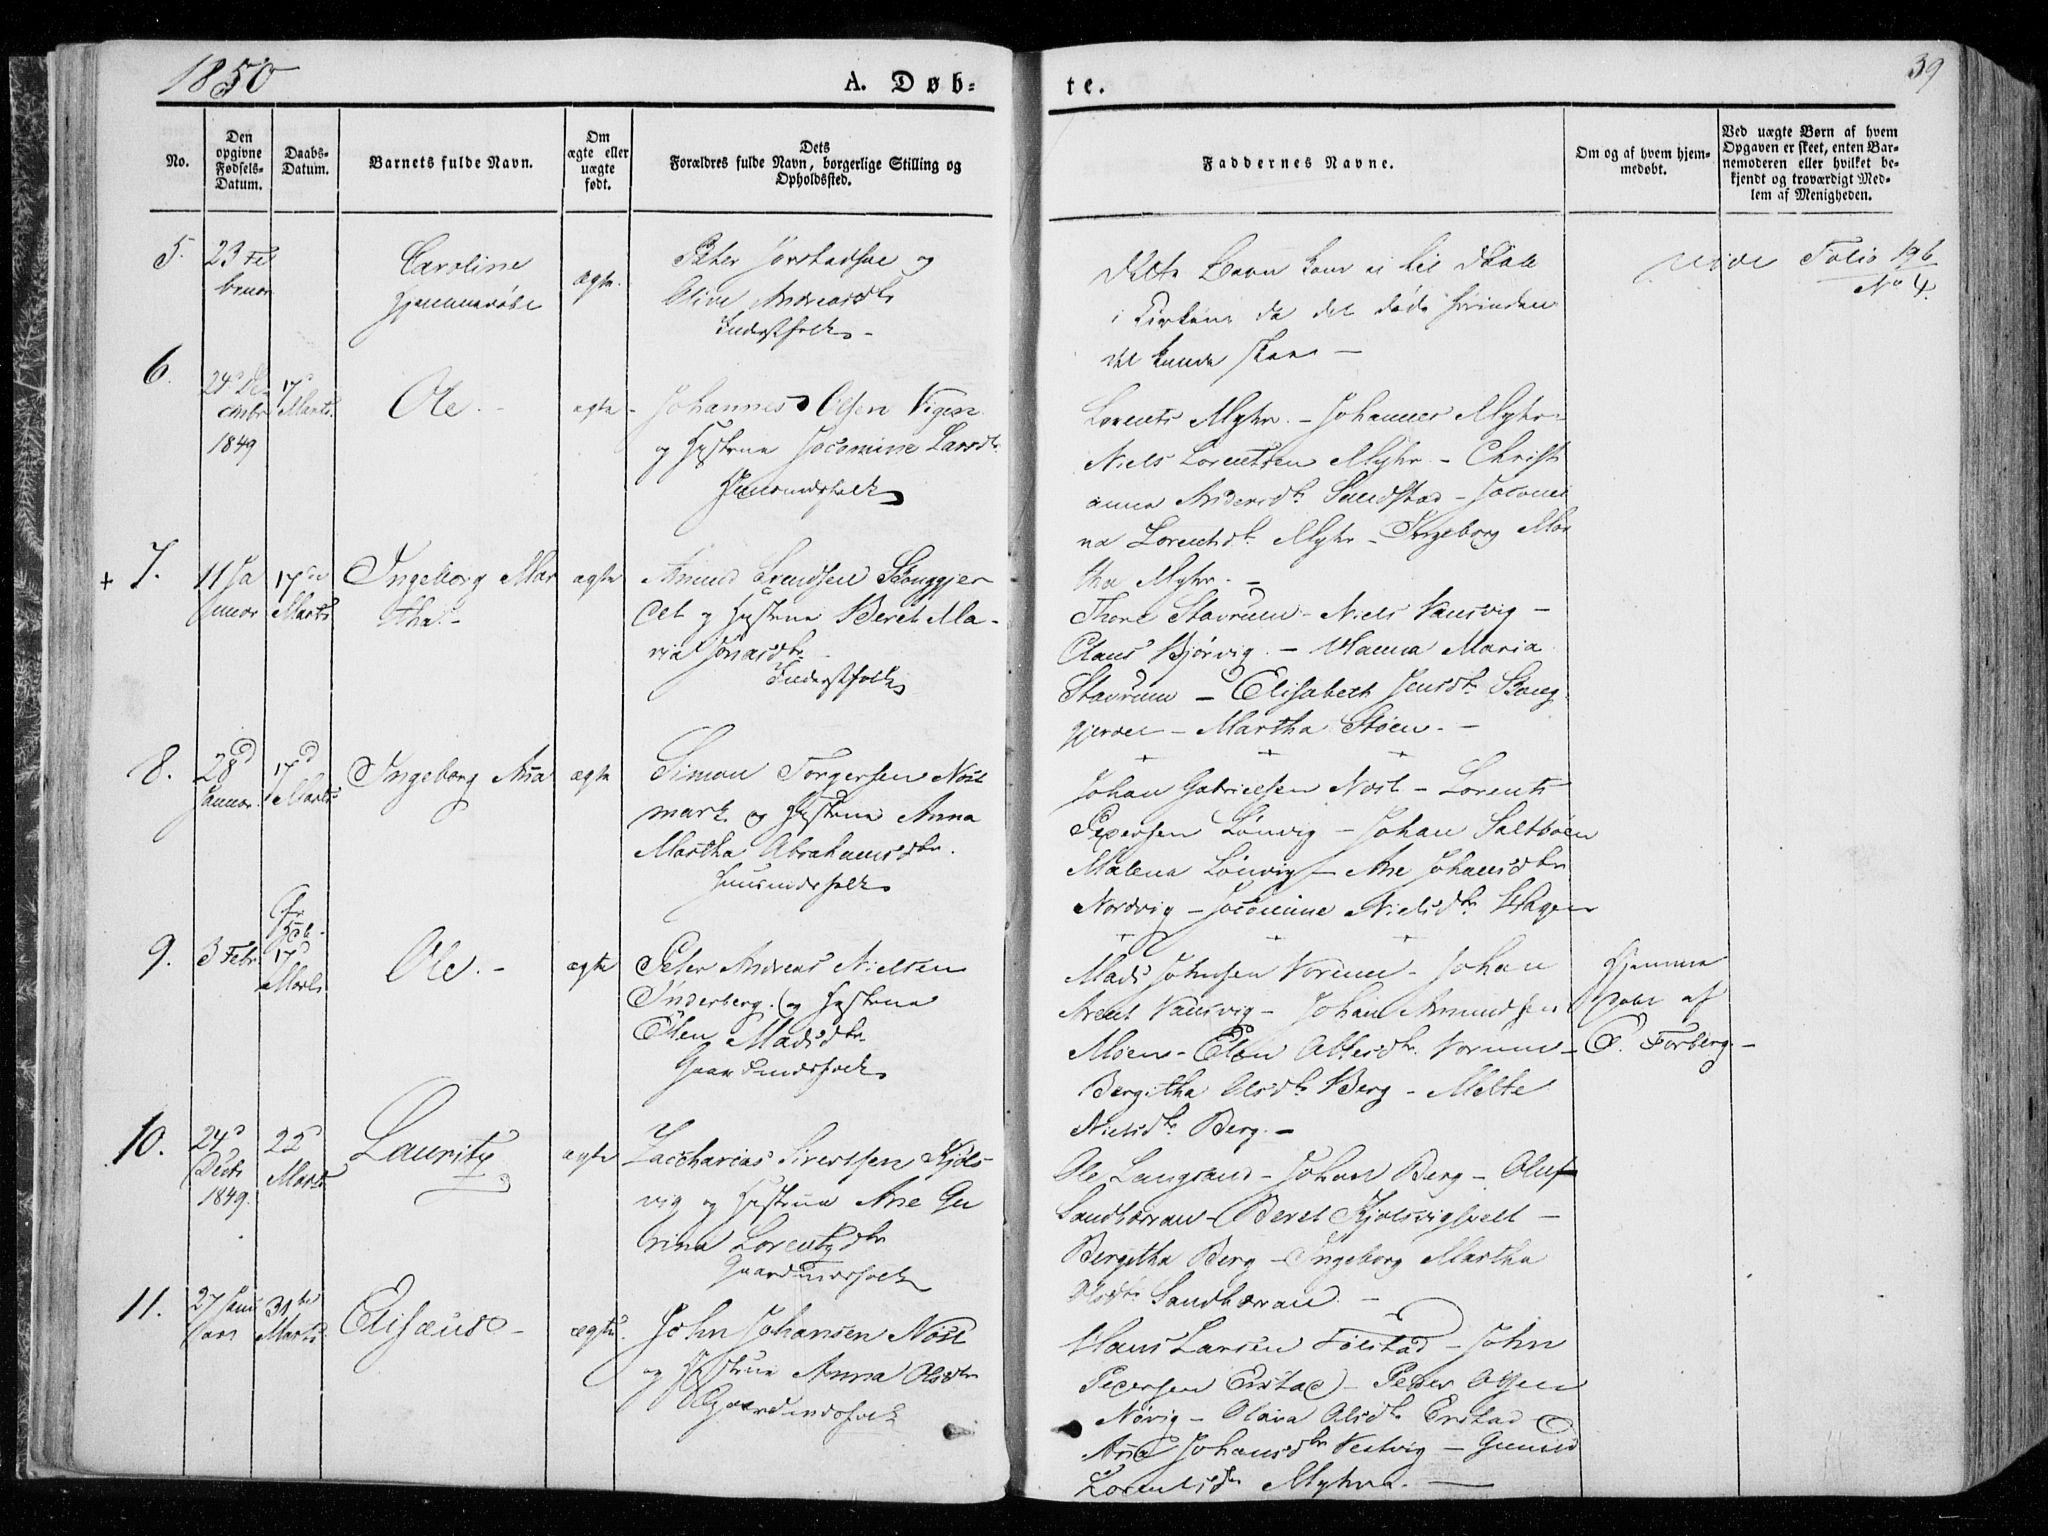 1850
A. Døb-
te.
39
No.
Den
opgivne
Fødsels-
Datum.
Daabs-
Datum.
Barnets fulde Navn.
Om
ægte eller
uægte
født.
Dets
Forældres fulde Navn, borgerlige Stilling og
Opholdssted.
Faddernes Navne.
Om og af hvem hjem-
medøbt.
Ved uægte Børn af hvem
Opgaven er skeet, enten Bar-
nemoderen eller hvilket be-
kjendt og troværdigt Med-
lem af Menigheden.
5.
23 Fe
bruar
Caroline
Hjemmedøbt
ægte.
Peter Jørstadsæ og
Oline Andreasdtr
Inderstfolk
dette Barn kom ei til Daab
i Kirken da det døde forinden
det kunde skee —
vide Folio 196
No 4.
6.
24de De
cmbr
1849
17d
Marts.
Ole. -
ægte -
Johannes Olsen Vigen
og Hustrue Jocomine Larsdtr
Huusmandsfolk
Lorents Myhr. - Johannes Myhr -
Niels Lorentsen Myhr - Christi
anna Andersdtr Sundstad - Jocomi
na Lorentsdtr Myhr - Ingeborg Mar
tha Myhr. -
+ 7.
11 Ja
nuar
17de
Marts
Ingeborg Mar
tha. -
ægte
Amund Skouggjer
det og Hustrue Beret Ma-
ria Jonasdtr
Inderstfolk
Thore Stavrum - Niels Vansvig -
Claus Bjørvig. - Hanna Maria
Stavrum - Elisabeth Jensdtr Skoug
gjerdet - Martha Støen. -
8.
28d
Januar
17d
Marts
Ingeborg Ana
ægte
Simon Torgersen Nost
mark og Hustrue Anna
Martha Abrahamsdtr.
Huusmandsfolk
Johan Gabrielsen Nost - Lorents
Pedersen Lønvig - Johan Saltbøen
Malena Lønvig - Ane Johansdtr
Nordvig - Jocomine Nielsdtr Hagen
9.
3 Febr.
17d
Marts
Ole. -
ægte
Peter Andreas Nielsen
Inderberg. og Hustrue
Ellen Madsdtr
Gaardmandsfolk
Mads Johnsen Vorum - Johan
Arent Vansvig - Johan Amundsen
Moen - Ellen Ottesdtr Vorum -
Bergitha Olsdtr Berg - Melte
Nielsdtr Berg. -
Hjemme
døbt af
O. Forberg -
10.
24d
Decbr
1849.
22d
Marts
Lauritz
ægte
Zaccharias Sivertsen Kjøls
vig og Hustrue Ane Gu
rina Lorentzdtr
Gaardmandsfolk
Ole Langsand - Johan Berg - Oluf
Sandharran - Beret Kjølsvighvelt -
Bergitha Berg - Ingeborg Martha
Olsdtr Sandharran. -
11.
27 Janu
ars
31te
Marts
Elisæus -
ægte.
John Johansen Nost
og Hustrue Anna Olsdtr
Gaardmandsfolk
Hans Larsen Følstad - John
Pedersen Erstad - Peder Olsen
Nøvig - Olava Olsdtr Erstad
Ana Johansdtr Vestvig - Gunild
Lorentsdtr Myhra. -